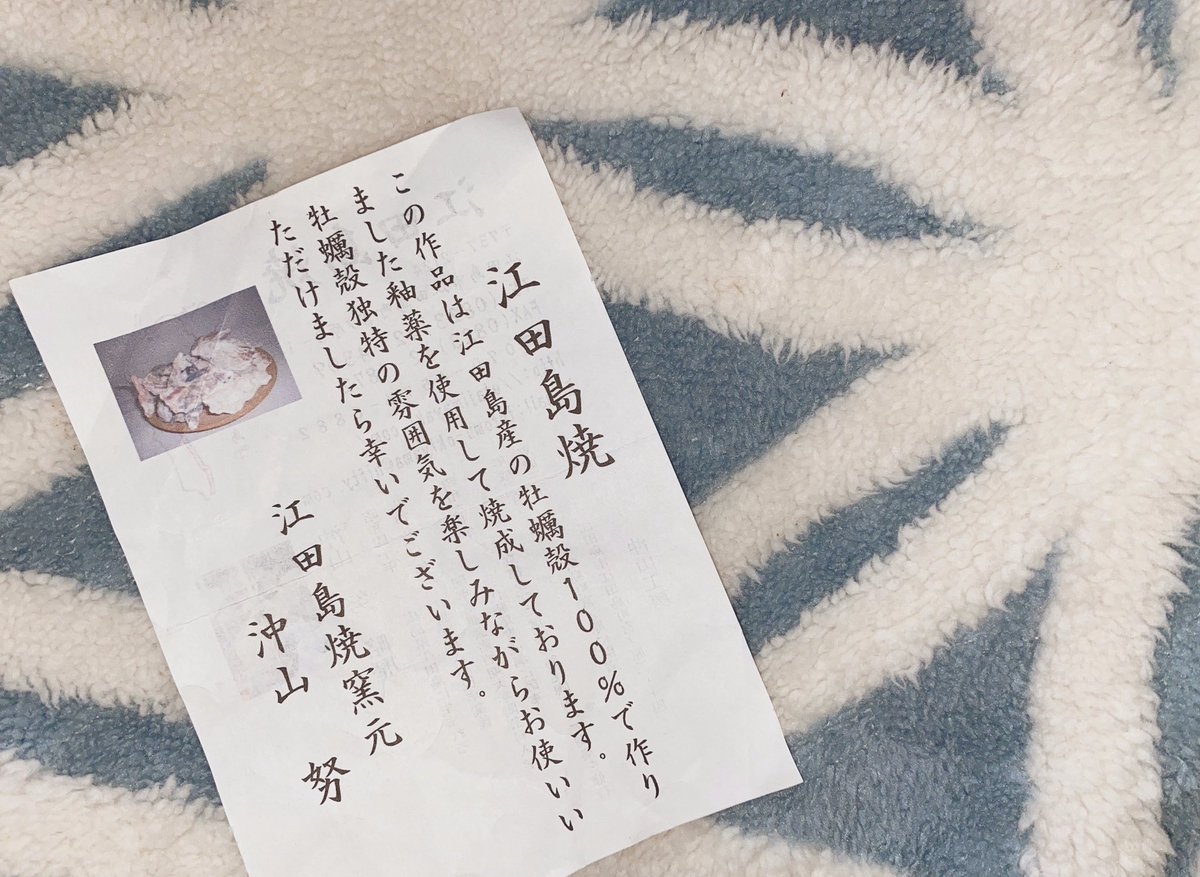 江田島焼
この作品は江田島産の牡蠣殻100%で作り
ました釉薬を使用して焼成しております。
牡蠣殻独特の雰囲気を楽しみながらお使いい
ただけましたら幸いでございます。
江田島焼窯元
沖山 努